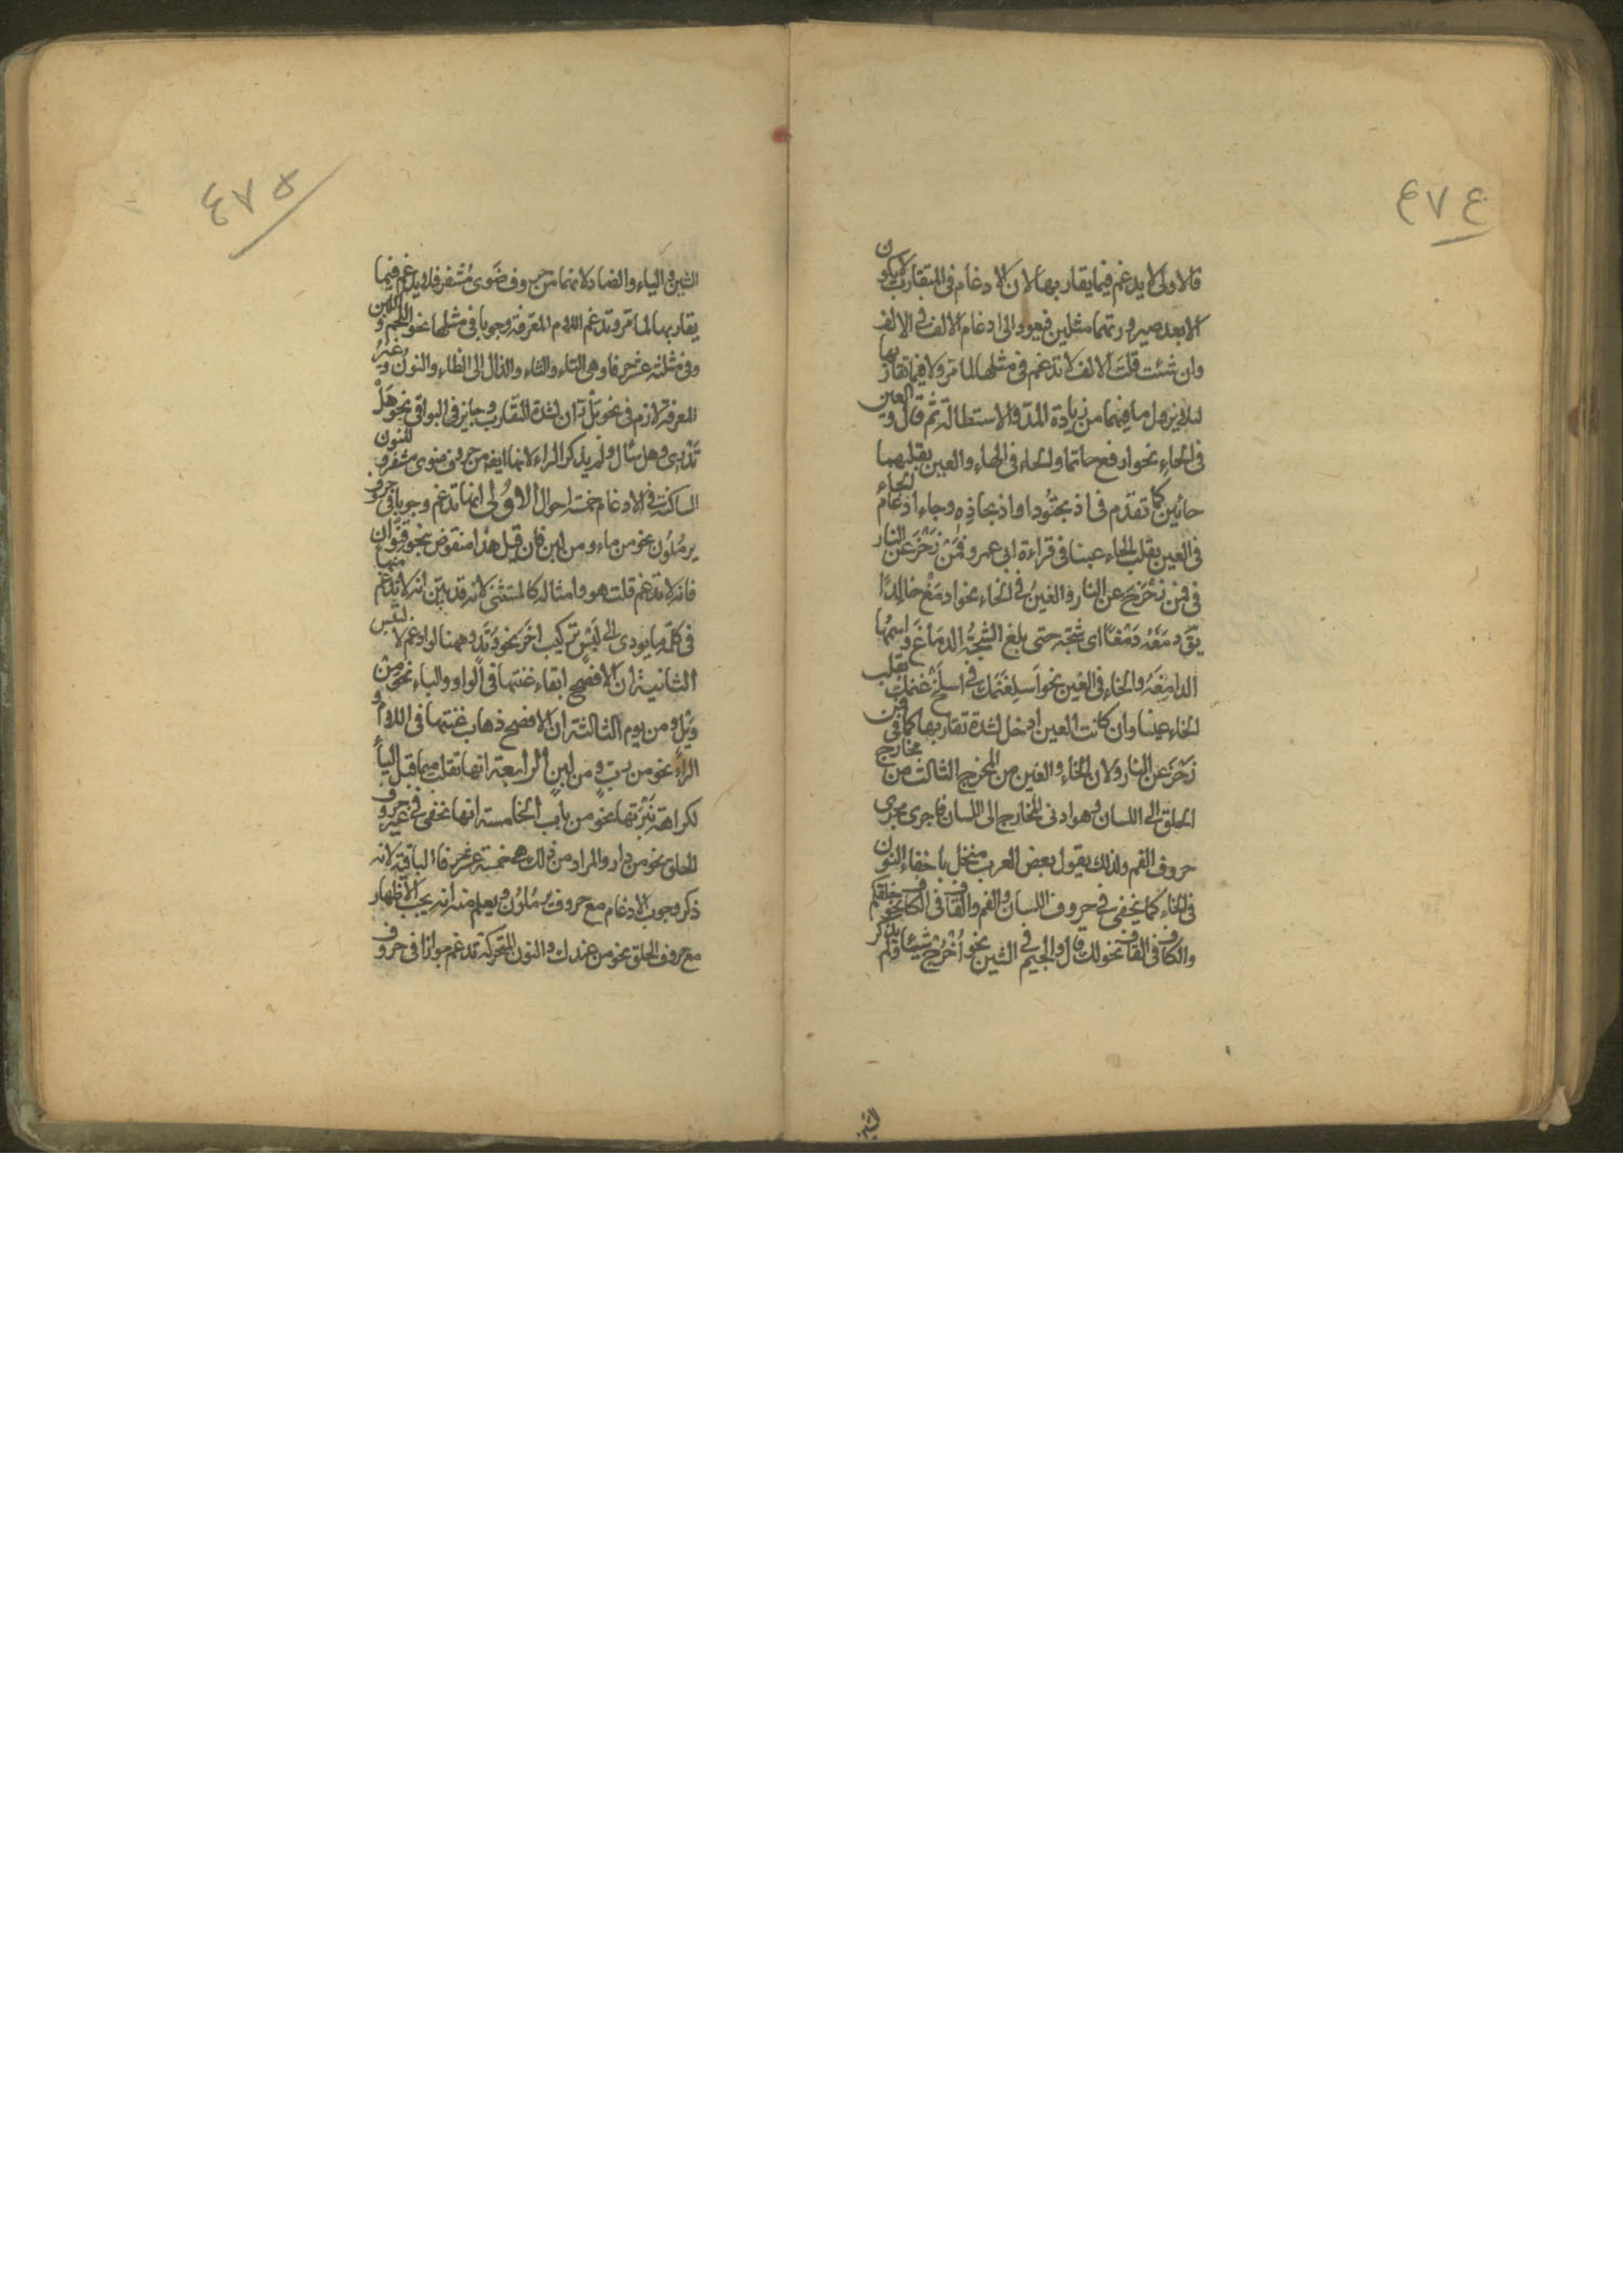 ٤٧٤
فالاولى لا يدغم فيما يقاربها لان الادغام فى المتقارب لا يكون
الا بعد صيرورتهما مثلين فيعود الى ادغام الالف فى الالف
وان شئت قلت الالف لا تدغم فى مثلها لما مر ولا فيما تقاربها
لئلا يزول ما فيهما من زيادة المد والاستطالة ثم قال والعين
فى الحاء نحو ارفع حاتما والحاء فى الهاء والعين بقلبهما
حائين كما تقدم فى اذبحتودا واذبحاذه وجاء ادغام الحاء
فى العين بقلب الحاء عينا فى قراءة ابى عمرو فمن زحزع عن النار
فى فمن زحزح عن النار والغين فى الخاء نحو ادمغ خالدا
يق دمغه دمغا اى شجه حتى بلغ الشجة الدماغ واسمها
الدامغة والخاء فى الغين نحو اسلغنمك فى اسلخ غنمك بقلب
الخاء غينا وان كانت العين ادخل لشدة تقاربها كما فى فمن
زحزع عن النار ولان الخاء والغين من المخرج الثالث من مخارج
الحلق الى اللسان وهو ادنى المخارج الى اللسان فاجرى مجرى
حروف الفم ولذلك يقول بعض العرب منخل باخفاء النون
فى الخاء كما يخفى فى حروف اللسان والفم والقاف فى الكاف نحو خلقكم
والكاف فى القاف نحو لك قال والجيم فى الشين نحو اخرج شيئا ولم يذكر
الشين
٤٧٥
الشين والياء والضاد لانهما من حروف ضوى مشفر فلا يدغم فيما
يقاربها لما مر وتدغم اللام المعرفة وجوبا فى مثلها نحو اللحم واللبن
وفى ثلثة عشر حرفا وهى التاء والثاء والدال الى الظاء والنون وغير
المعرفة لازم فى نحو بل ران لشدة التقارب وجايز فى البواقى نحو هل
تدرى وهل سال ولم يذكر الراء لانها ايضا من حروف ضوى مشفر وللنون
الساكنة فى الادغام خمسة احوال الاولى انها تدغم وجوبا فى حروف
يرملون نحو من ماء ومن لبن فان قيل هذا منقوض بنحو قنوان
فانه لا تدغم قلت هو وامثاله كالمستثنى لانه قد بين انه لا تدغم منها
فى كلمة ما يودى الى لبس تركيب اخر نحو وتد وههنا لو ادغم لالتبس
الثانية ان الافصح ابقاء غنتها فى الواو والياء نحو من
ويل ومن يوم الثالثة ان الافصح ذهاب غنتها فى اللام و
الراء نحو من رب ومن لبن الرابعة انها تقلب ميما قبل الباء
لكراهة نبرتها نحو من باب الخامسة انها تخفى فى غير حروف
الحلق نحو من دار والمراد من ذلك هى خمسة عشر حرفا الباقية لانه
ذكر وجوب الادغام مع حروف يرملون ويعلم منه انه يجب الاظهار
مع حروف الحلق نحو من عندك والنون المتحركة تدغم جوازا فى حروف